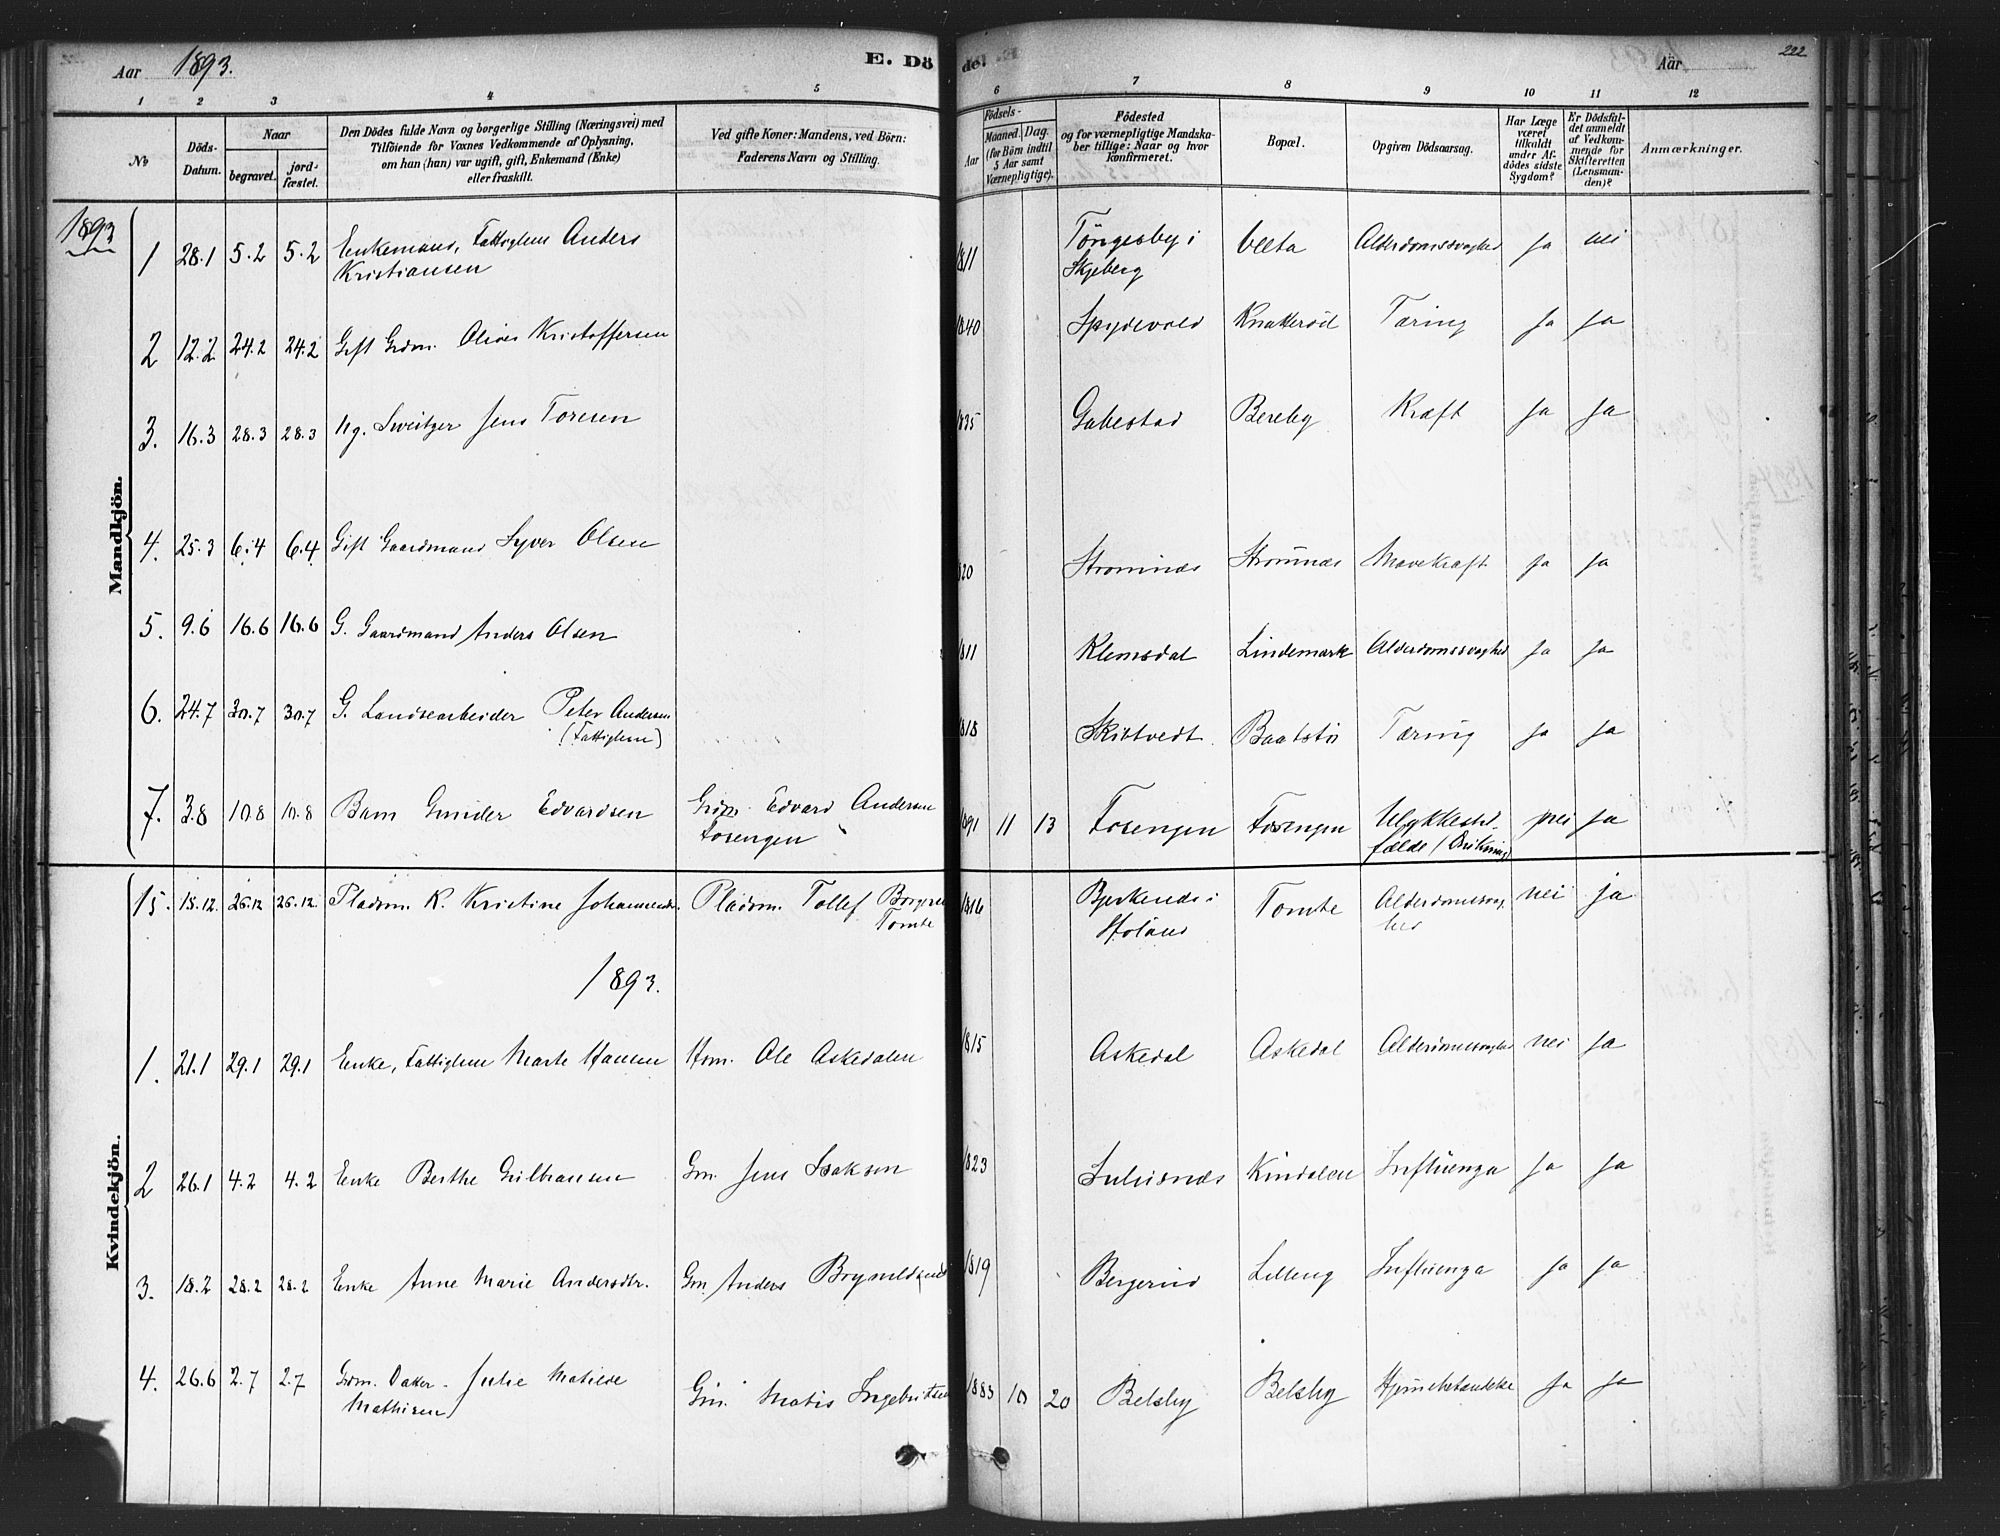 Aar 1893.
E. Dö
del.
Aar
222
1 2 3 4 5 6 7 8 9 10 11 12
No
Döds-Datum.
Naar
begravet.
jord-fæstet.
Den Dödes fulde Navn og borgerlige Stilling (Næringsvei) med
Tilföiende for Voxnes Vedkommende af Oplysning,
om han (han) var ugift, gift, Enkemand (Enke)
eller fraskilt.
Ved gifte Koner: Mandens, ved Börn:
Faderens Navn og Stilling.
Födsels-
Aar
Maaned. Dag.
(for Börn indtil
5 Aar samt
Værnepligtige).
Födested
og for værnepligtige Mandska-
ber tillige: Naar og hvor
konfirmeret.
Bopæl.
Opgiven Dödsaarsag.
Har Læge
været
tilkaldt
under Af-
dödes sidste
Sygdom?
Er Dödsfal-
det anmeldt
af Vedkom-
mende for
Skifteretten
(Lensman-
den)?
Anmærkninger.
Mandkjön.
1893
1 28.1 5.2 5.2 Enkemand, Fattiglem Anders Kristiansen 1811 Töngesby i Skjeberg Alderdomssvaghed ja nei
2 12.2 24.2 24.2 Gift Grdm. Kristoffersen 1840 Spydevold Knatteröd Tæring ja ja
3. 16.3 28.3 28.3 Ug. Sveitzer Jens Toresen 1835 Gabestad Bereby Kræft ja ja
4. 25.3 6.4 6.4 Gift Gaardmand Syver Olsen 1820 Strömnæs Strömnæs Mavekræft ja ja
5. 9.6 16.6 16.6 G. Gaardmand Anders Olsen 1811 Klemsdal Lindemark Alderdomssvaghed ja ja
6. 24.7 30.7 30.7 G. Landsearbeider Peter Andersen (Fattiglem) 1818 Skibtvedt Baatstö Tæring ja ja
7. 3.8 10.8 10.8 Barn Gunder Edvardsen Grdm. Edvard Andersen Fosengen 1891 11 13 Fosengen Fosengen Ulykkestil-fælde nei ja
Kvindekjön.
15. 15.12 26.12 26.12 Pladsm. K. Kristine Johannesdtr. Pladsm. Tollef Tomte 1816 Bjerkenæs i Höland Tomte Alderdomssvag-hed nei ja
1893.
1. 21.1 29.1 29.1 Enke, Fattiglem Marte Hansen Hsm. Ole Askedalen 1815 Askedal Askedal Alderdomssvaghed nei ja
2 26.1 4.2 4.2 Enke Berthe Gulbransen Gm. Jens Isaksen 1823 Kindalen Influenza ja ja
3. 18.2 28.2 28.2 Enke Anne Marie Andersdtr. Gm. Anders 1819 Bergerud Lilleng Influenza ja ja
4. 26.6 2.7 2.7 Grdm. Datter Julie Matilde Mathisen Gm. Matis Ingebritsen 1883 10 20 Belsby Belsby ja ja